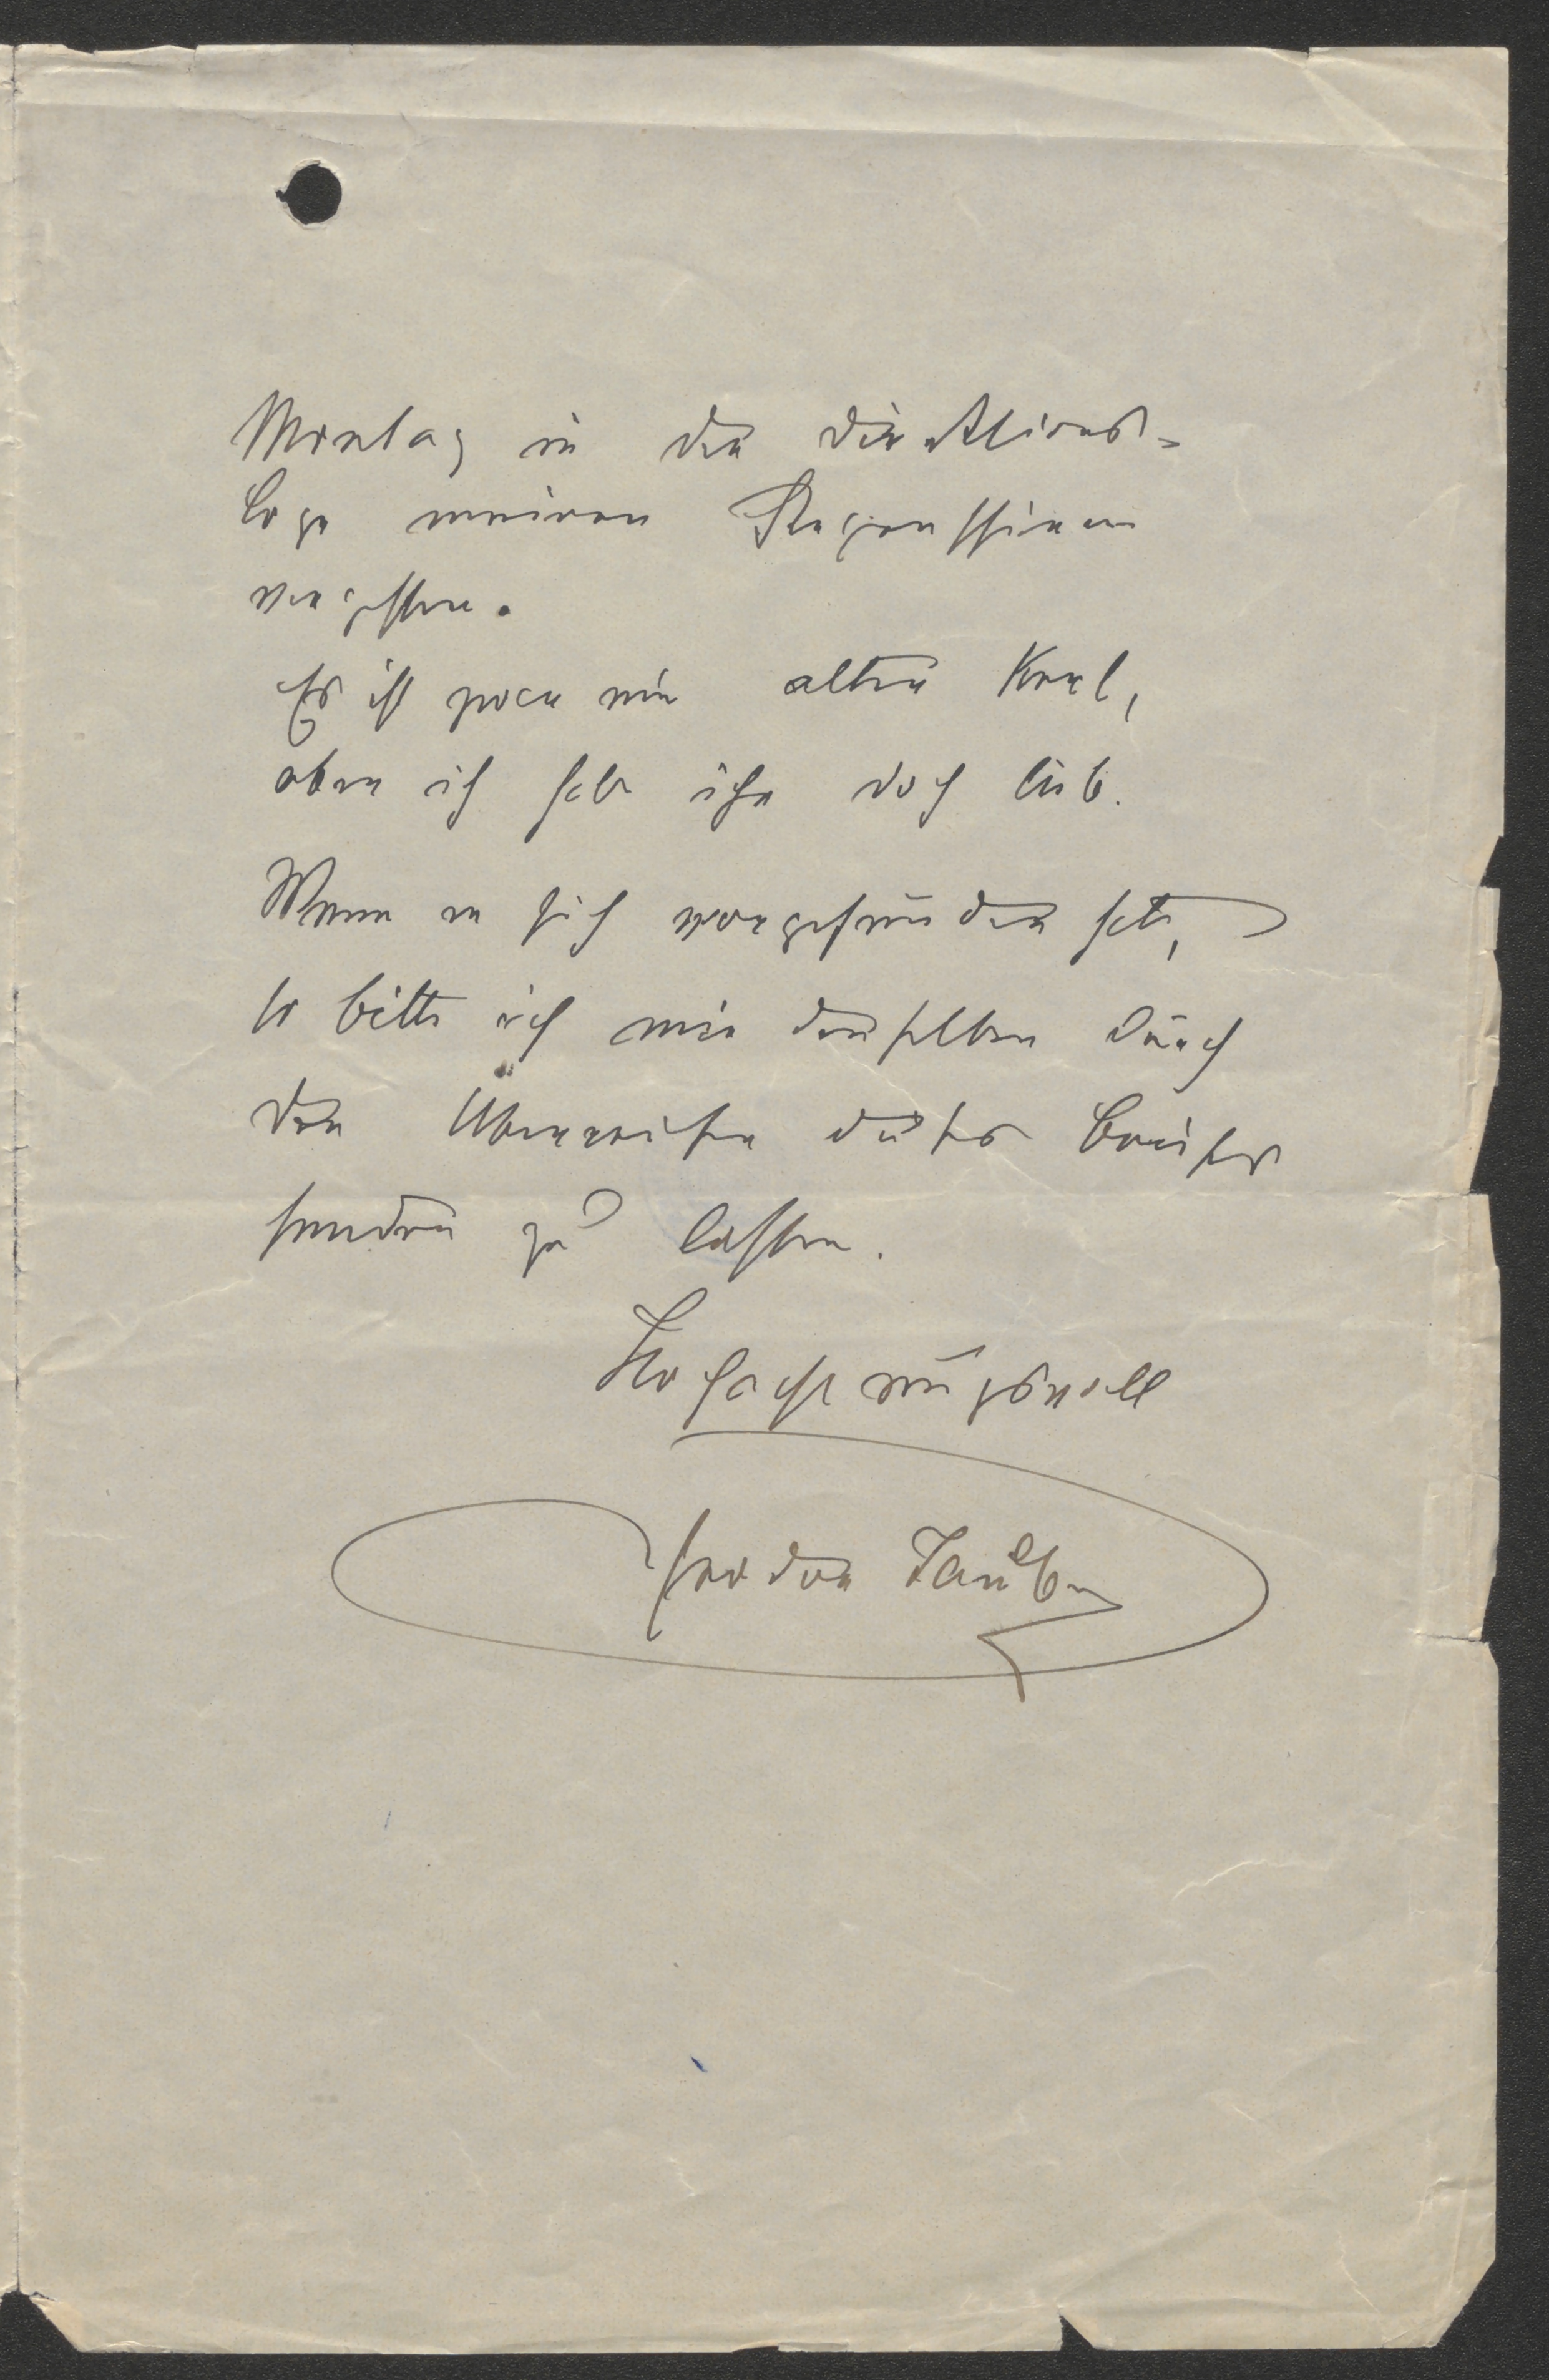 Montag in der Direktions-
loge meinen Regenschirm
vergessen.
Es ist zwar ein alter Kerl,
aber ich hab ihn doch lieb.
Wenn er sich vorgefunden hat,
so bitte ich mir denselben durch
den Überreicher dieses Briefes
senden zu lassen.
Hochachtungsvoll
Theodor Taube